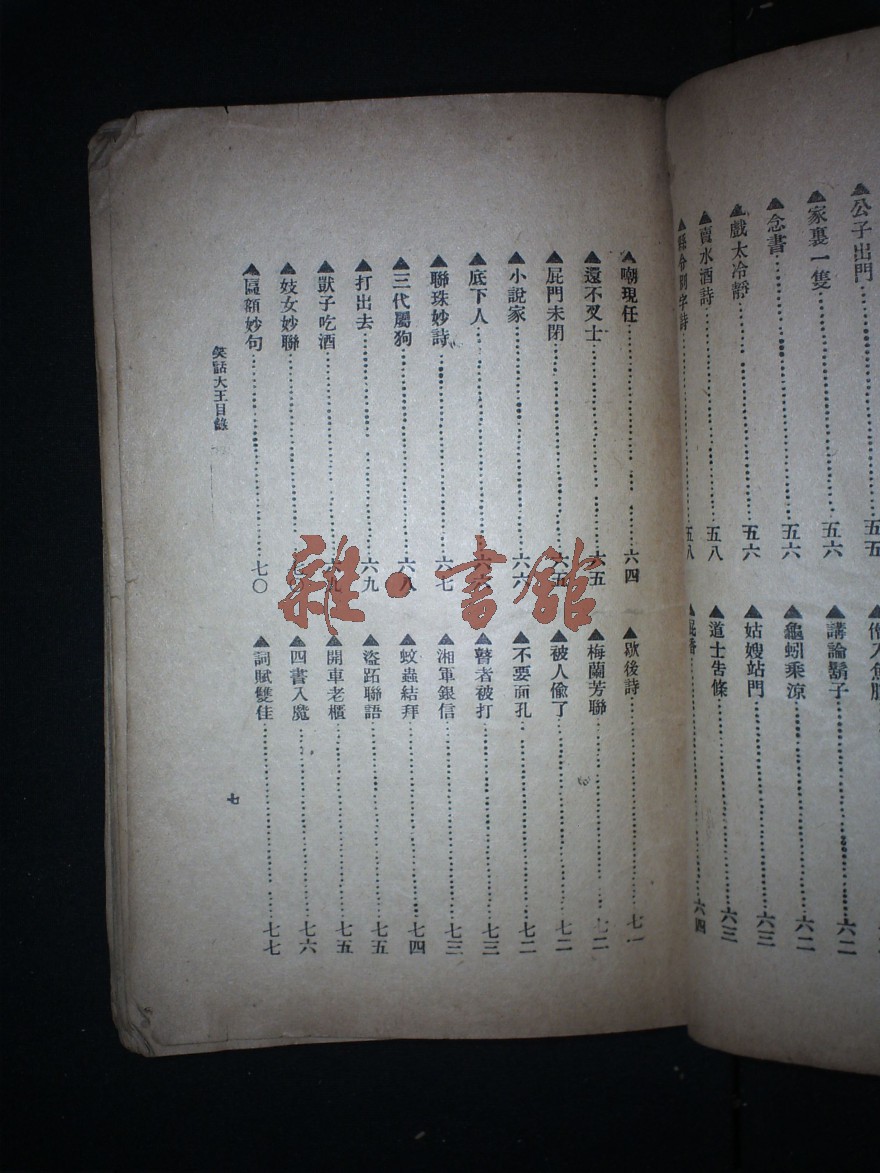 ▲公子出門……五五
▲家裏一隻……五六
▲念書……五六
▲戲太冷靜……五六
▲賣水酒詩……五八
▲縣令別字詩……五八
▲講論鬍子……六二
▲龜蚓乘涼……六二
▲姑嫂站門……六三
▲道士告條……六三
……六四
▲嘲現任……六四
▲還不叉士……六五
▲屁門未閉……六五
▲小說家……六六
▲底下人……六六
▲聯珠妙詩……六七
▲三代屬狗……六八
▲打出去……六九
▲獃子吃酒……六九
▲妓女妙聯……七〇
▲匾額妙句……七〇
▲歇後詩……七一
▲梅蘭芳聯……七二
▲被人偷了……七二
▲不要面孔……七二
▲瞽者被打……七三
▲湘軍銀信……七三
▲蚊蟲結拜……七四
▲盜跖聯語……七五
▲開車老櫃……七五
▲四書入魔……七六
▲詞賦雙佳……七七
笑話大王目錄
七
雜·書館